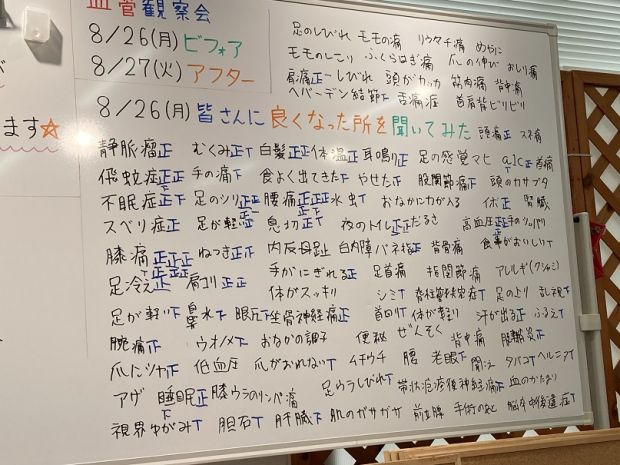 血管観察会
8/26(月) ビフォア
8/27(火) アフター
ます☆
足のしびれ モモの痛 リウマチ痛 めやに
モモのしこり ふくらはぎ痛 爪の伸び おしり痛
肩痛正一 しびれ 頭がカッカ 筋肉痛 背中痛
ヘバーデン結節T 舌痛症 首肩背ビリビリ
8/26(月) 皆さんに良くなった所を聞いてみた 頭痛正 スネ痛
静脈瘤正 むくみ正T 白髪正正 体温正 耳鳴り正 足の感覚マヒ a1c正 首痛
飛蚊症正 手の痛T 食よく出てきたT やせた正 股関節痛T 頭のカサブタ
不眠症正T 足のシリ正 腰痛正正正 水虫T おなかに力が入る イボ正 腎臓
スベリ症正 足が軽い正 息切T 夜のトイレ正 だるさ 高血圧正正 手の
膝痛正正正 ねつき正T 内反母趾 白内障 バネ指正 背骨痛 食事がおいしいT
足冷え正 肩コリ正正 手がにぎれる正 足首痛 指関節痛 アレルギ(クシャミ)
体がスッキリ シミT 脊柱管狭窄症T 足のつり 乱視T
足が軽いT 鼻水T 眼圧T 坐骨神経痛正 首回りT 体が軽い 汗が出る正 ふるえT
腕痛T ウオノメT おなかの調子 便秘 ぜんそく 背中痛 膵臓炎T
爪にシャ正 低血圧 爪がおれないT ムチウチ 腰 老眼T 聞え タバコT ヘルニアT
アザ 睡眠正 膝ウラのリンパ痛 足ウラしびれT 帯状疱疹後神経痛T 血のかたまり
視界ゆがみT 胆石T 肝臓T 肌のガサガサ 前立腺 手術のあと 脳卒中後遺症T